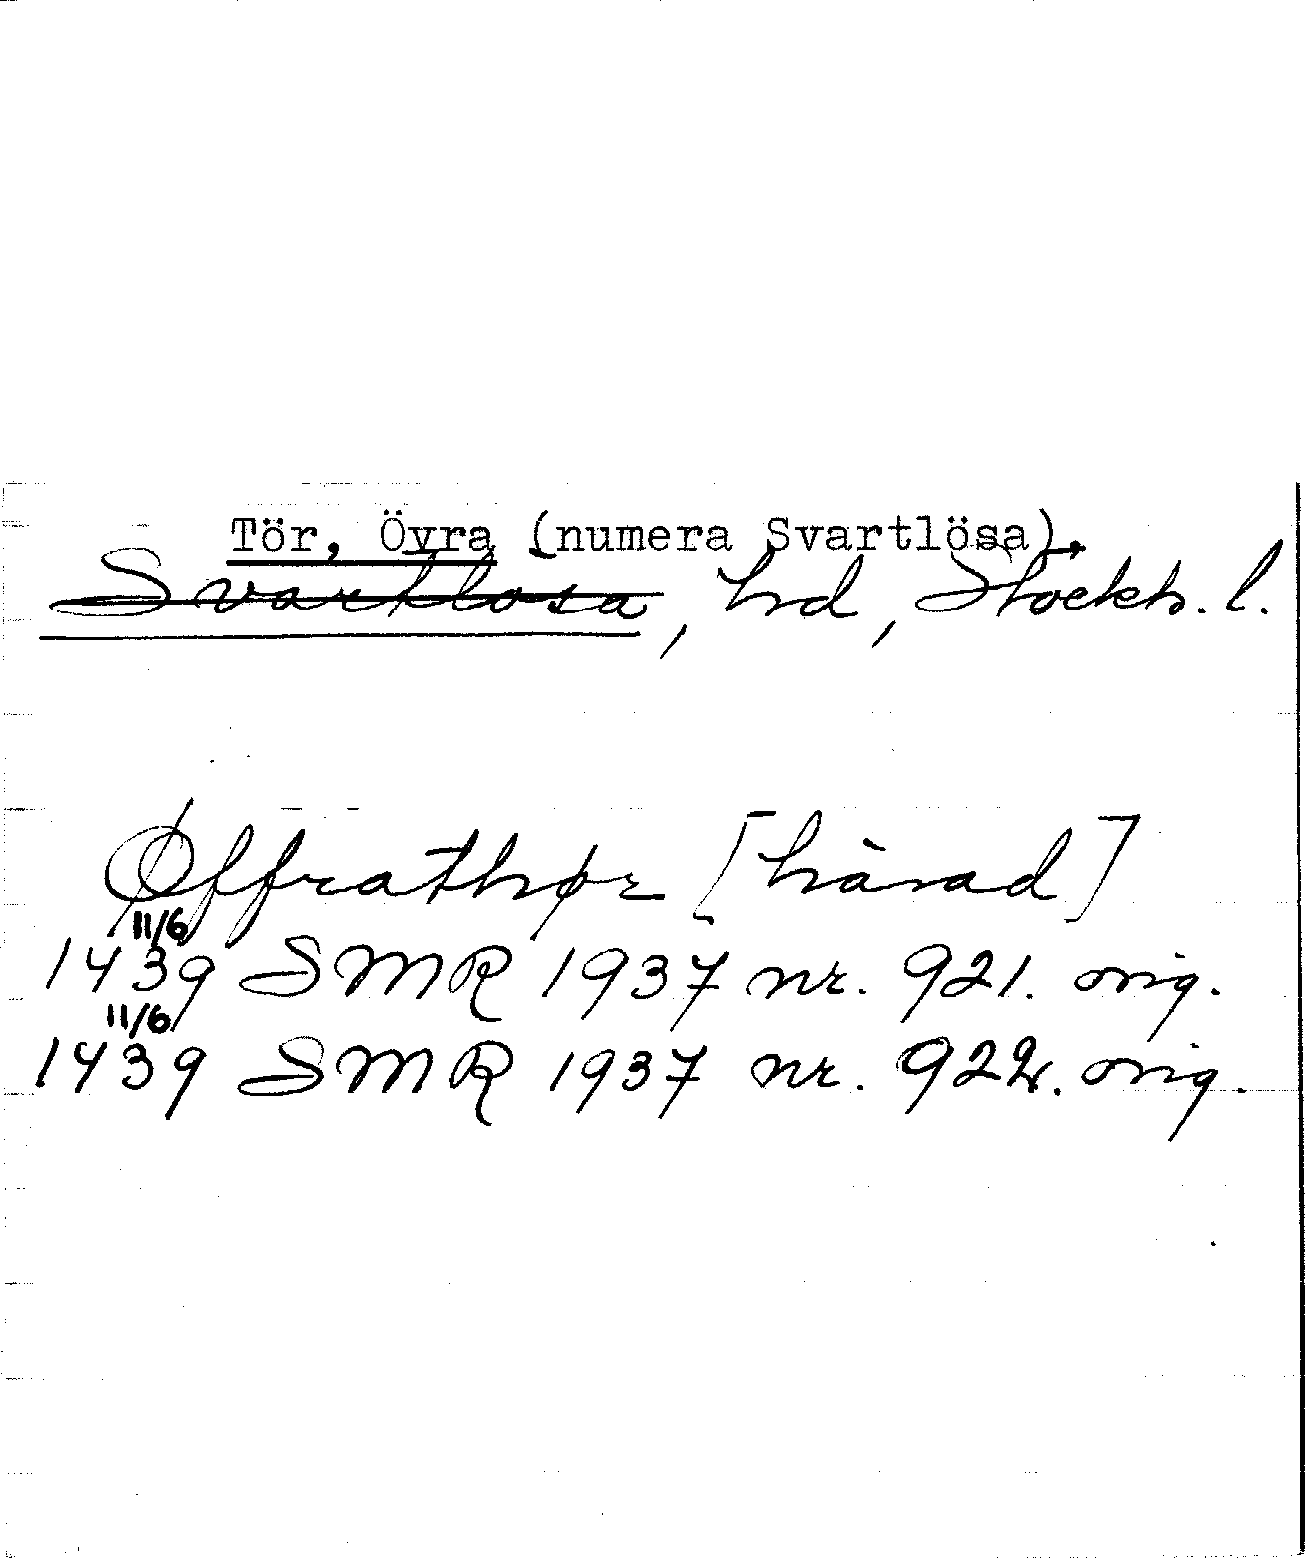 Tör, Övra (numera Svartlösa),
Svartlösa, hd, Stockh. l.
Øffrathør [härad]
11/6
1439 SMR 1937 nr. 921. orig.
11/6
1439 SMR 1937 nr. 922. orig.